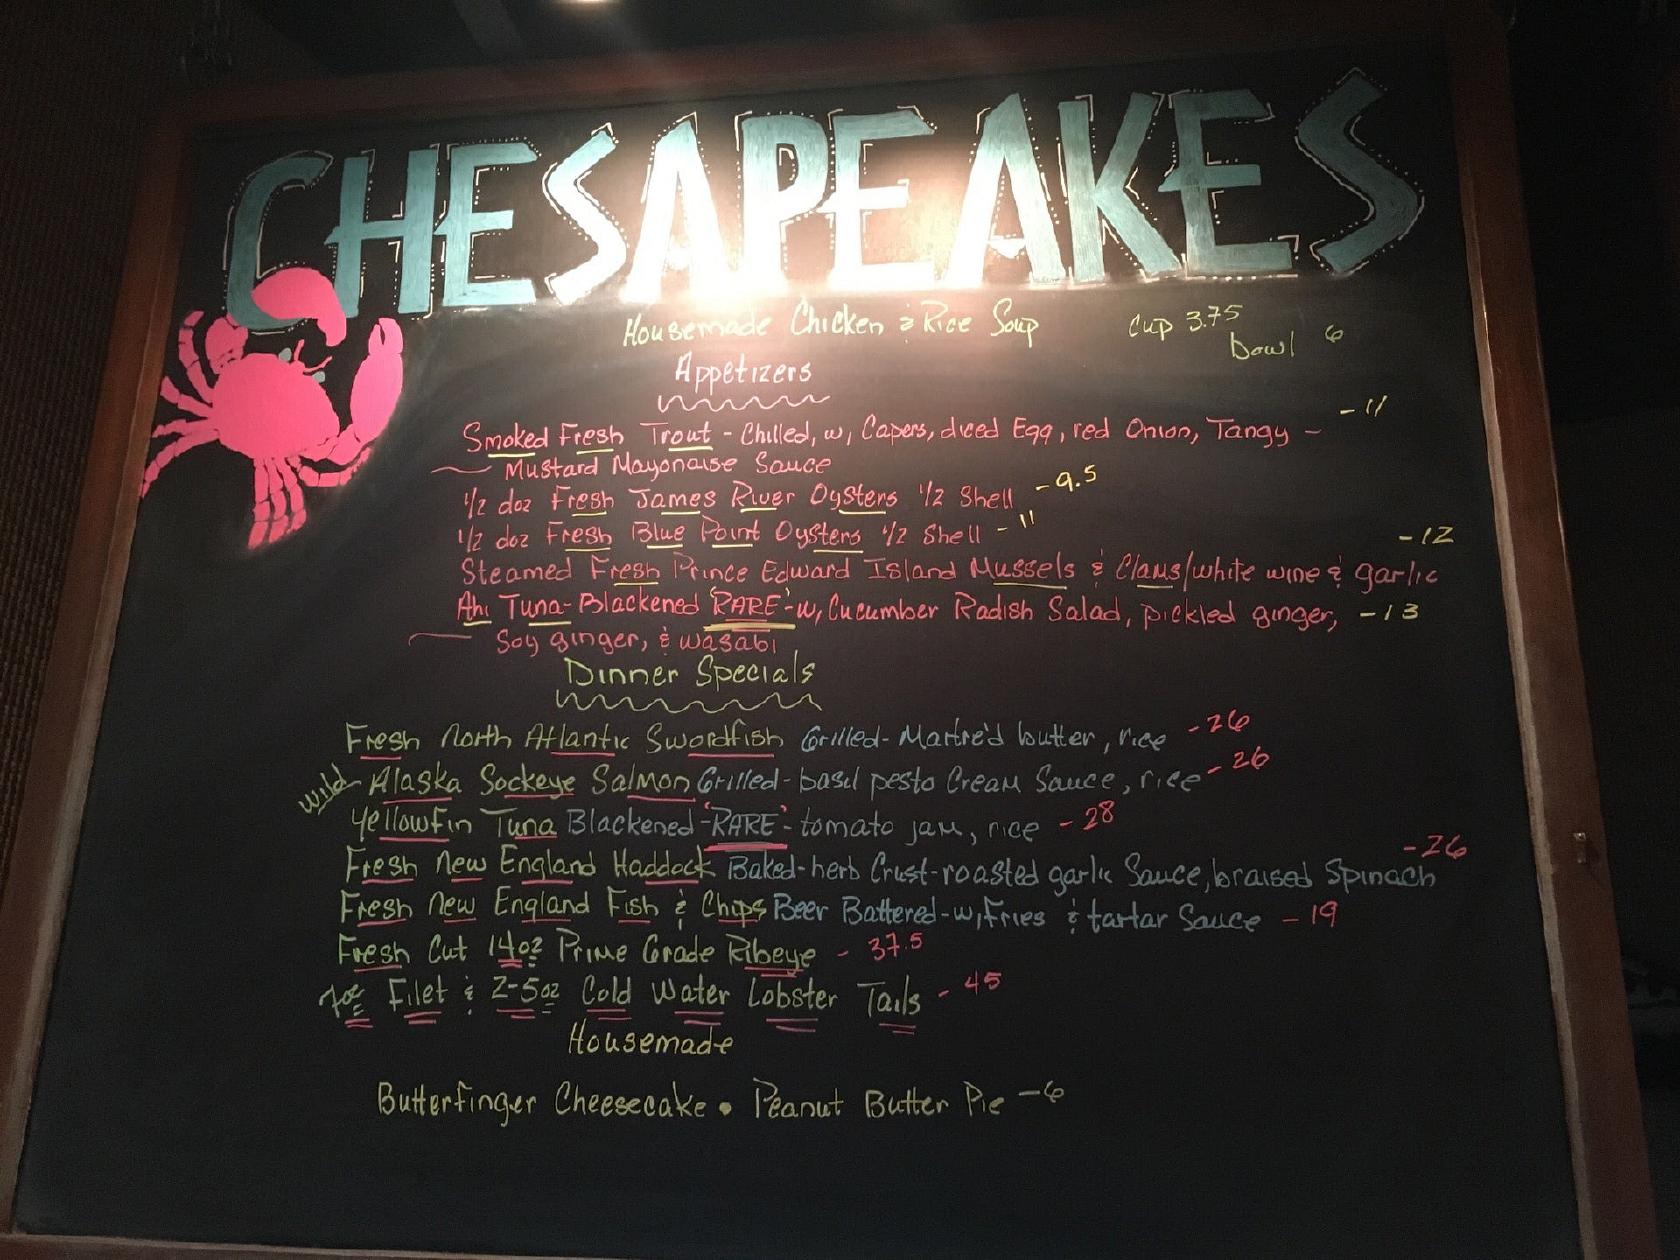 CHESAPEAKES
Housemade Chicken & Rice Soup Cup 3.75
bowl 6
Appetizers
Smoked Fresh Trout - Chilled, w, Capers, diced Egg, red Onion, Tangy - - 11
Mustard Mayonaise Sauce
1/2 doz Fresh James River Oysters 1/2 Shell - 9.5
1/2 doz Fresh Blue Point Oysters 1/2 Shell - 11
Steamed Fresh Prince Edward Island Mussels & Clams/white wine & garlic - 12
Ahi Tuna - Blackened 'RARE' - w, Cucumber Radish Salad, pickled ginger, - 13
Soy ginger, & wasabi
Dinner Specials
Fresh North Atlantic Swordfish Grilled - Martre'd butter, rice - 26
Wild Alaska Sockeye Salmon Grilled - basil pesto Cream Sauce, rice - 26
Yellowfin Tuna Blackened - 'RARE' - tomato jam, rice - 28
Fresh New England Haddock Baked - herb Crust - roasted garlic Sauce, braised Spinach - 26
Fresh New England Fish & Chips Beer Battered - w, Fries & tartar Sauce - 19
Fresh Cut 14oz Prime Grade Ribeye - 37.5
7oz Filet & 2-5oz Cold Water Lobster Tails - 45
Housemade
Butterfinger Cheesecake • Peanut Butter Pie - 6